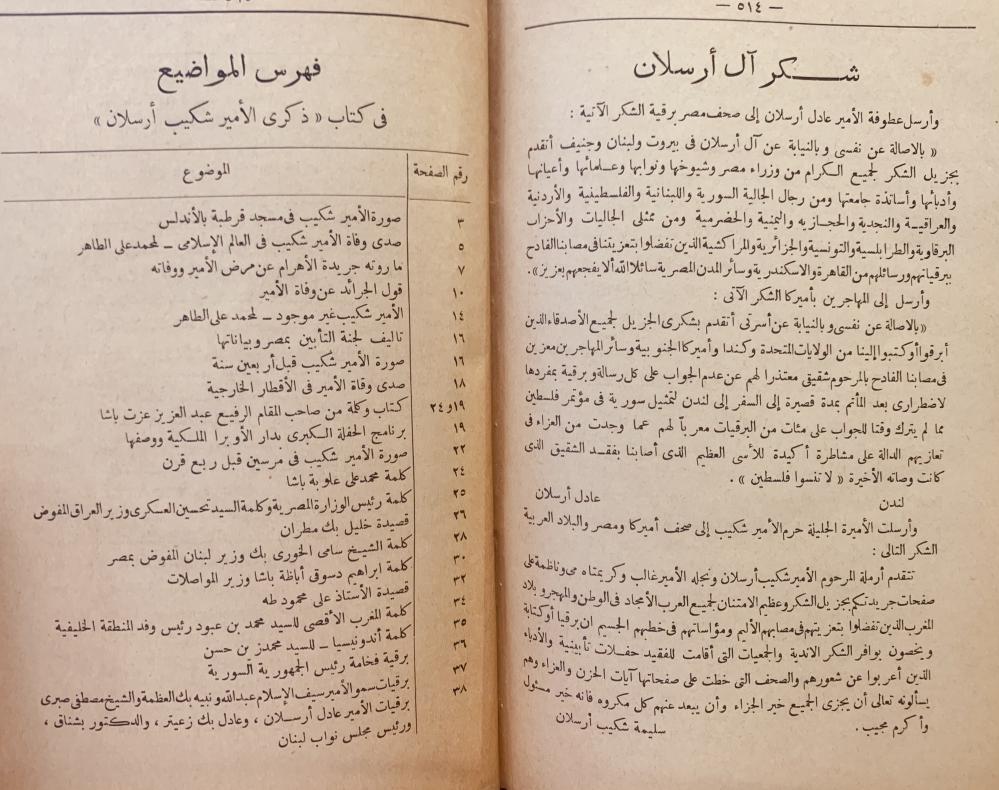 — ٥١٤ —
شكر آل أرسلان
وأرسل عطوفة الأمير عادل أرسلان إلى صحف مصر برقية الشكر الآتية :
« بالاصالة عن نفسى وبالنيابة عن آل أرسلان فى بيروت ولبنان وجنيف أتقدم
بجزيل الشكر لجميع الكرام من وزراء مصر وشيوخها ونوابها وعلمائها وأعيانها
وأدبائها وأساتذة جامعتها ومن رجال الجالية السورية واللبنانية والفلسطينية والأردنية
والعراقية والنجدية والحجازيه واليمنية والحضرمية ومن ممثلى الجاليات والأحزاب
البرقاوية والطرابلسية والتونسية والجزائرية والمراكشية الذين تفضلوا بتعزيتنا فى مصابنا الفادح
ببرقياتهم ورسائلهم من القاهرة والاسكندرية وسائر المدن المصرية سائلا الله ألا يفجعهم بعزيز».
وأرسل إلى المهاجرين بأميركا الشكر الآتى :
«بالاصالة عن نفسى وبالنيابة عن أسرتى أتقدم بشكرى الجزيل لجميع الأصدقاء الذين
أبرقوا أو كتبوا إلينا من الولايات المتحدة وكندا وأميركا الجنوبية وسائر المهاجر بن معزين
فى مصابنا الفادح بالمرحوم شقيقى معتذرا لهم عن عدم الجواب على كل رسالة وبرقية بمفردها
لاضطرارى بعد المأتم بمدة قصيرة إلى السفر إلى لندن لتمثيل سورية فى مؤتمر فلسطين
مما لم يترك وقتا للجواب على مئات من البرقيات معرباً لهم عما وجدت من العزاء فى
تعازيهم الدالة على مشاطرة أكيدة للأسى العظيم الذى أصابنا بفقد الشقيق الذى
كانت وصاته الأخيرة « لا تنسوا فلسطين » .
لندن عادل أرسلان
وأرسلت الأميرة الجليلة حرم الأمير شكيب إلى صحف أميركا ومصر والبلاد العربية
الشكر التالى :
تتقدم أرملة المرحوم الأمير شكيب أرسلان ونجله الأمير غالب وكريمتاه مى وناظمة على
صفحات جريدتكم بجزيل الشكر وعظيم الامتنان لجميع العرب الأمجاد فى الوطن والمهجر وبلاد
المغرب الذين تفضلوا بتعزيتهم فى مصابهم الأليم ومؤاساتهم فى خطبهم الجسيم ان برقيا أو كتابة
ويخصون بوافر الشكر الاندية والجمعيات التى أقامت للفقيد حفلات تأبينية والأدباء
الذين أعربوا عن شعورهم والصحف التى خطت على صفحاتها آيات الحزن والعزاء وهم
يسألونه تعالى أن يجزى الجميع خير الجزاء وأن يبعد عنهم كل مكروه فانه خير مسئول
وأكرم مجيب . سليمة شكيب أرسلان
فهرس المواضيع
فى كتاب « ذكرى الأمير شكيب أرسلان »
رقم الصفحة الموضوع
٣ صورة الأمير شكيب فى مسجد قرطبة بالأندلس
٥ صدى وفاة الأمير شكيب فى العالم الإسلامى — لمحمد على الطاهر
٧ ما روته جريدة الأهرام عن مرض الأمير ووفاته
١٠ قول الجرائد عن وفاة الأمير
١٤ الأمير شكيب غير موجود — لمحمد على الطاهر
١٦ تاليف لجنة التأبين بمصر وبياناتها
١٦ صورة الأمير شكيب قبل أربعين سنة
١٨ صدى وفاة الأمير فى الأقطار الخارجية
١٩و٢٤ كتاب وكلمة من صاحب المقام الرفيع عبد العزيز عزت باشا
١٩ برنامج الحفلة الكبرى بدار الأوبرا الملكية ووصفها
٢٢ صورة الأمير شكيب فى مرسين قبل ربع قرن
٢٤ كلمة محمد على علوبة باشا
٢٥ كلمة رئيس الوزارة المصرية وكلمة السيد تحسين العسكرى وزير العراق المفوض
٢٦ قصيدة خليل بك مطران
٢٨ كلمة الشيخ سامى الخورى بك وزير لبنان المفوض بمصر
٣٠ كلمة ابراهيم دسوقى أباظة باشا وزير المواصلات
٣٢ قصيدة الأستاذ على محمود طه
٣٤ كلمة المغرب الأقصى للسيد محمد بن عبود رئيس وفد المنطقة الخليفية
٣٥ كلمة أندونيسيا — للسيد محمد بن حسن
٣٦ برقية فخامة رئيس الجمهورية السورية
٣٧ برقيات سمو الأمير سيف الإسلام عبد الله ونبيه بك العظمة والشيخ مصطفى صبرى
٣٨ برقيات الأمير عادل أرسلان ، وعادل بك زعيتر ، والدكتور بشناق ،
ورئيس مجلس نواب لبنان